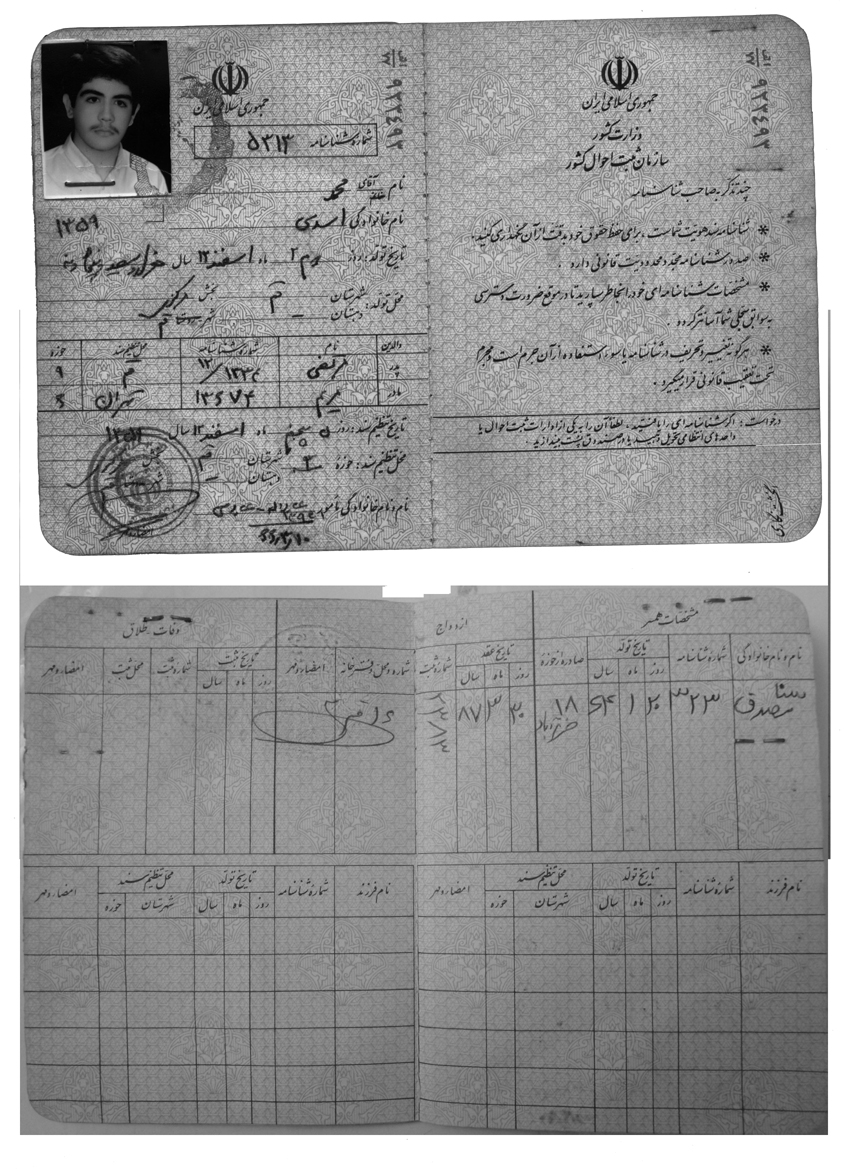 جمهوری اسلامی ایران
وزارت کشور
سازمان ثبت احوال کشور
چند تذکر به صاحب شناسنامه
* شناسنامه سند هویت شماست ، برای حفظ حقوق خود بدقت از آن نگهداری کنید .
* صدور شناسنامه مجدد محدودیت قانونی دارد .
* مشخصات شناسنامه ای خود را بخاطر بسپارید تا در موقع ضرورت دسترسی
به سوابق سجلی شما آسانتر گردد .
* هرگونه تغییر و تحریف در شناسنامه یا سوء استفاده از آن جرم است و مجرم
تحت تعقیب قانونی قرار میگیرد .
درخواست : اگر شناسنامه ای را یافتید ، لطفاً آن را به یکی از ادارات ثبت احوال یا
واحدهای انتظامی تحویل دهید یا در صندوق پست بیندازید .
جمهوری اسلامی ایران
شماره شناسنامه ۵۳۱۳
نام آقای محمد
نام خانوادگی اسدی ۱۳۵۹
تاریخ تولد : روز دوم ۲ ماه اسفند ۱۲ سال
محل تولد : شهرستان قم بخش مرکزی
دهستان – شهر قم
والدین نام شماره شناسنامه محل تنظیم سند حوزه
پدر مرتضی قم ۹
مادر مریم ۱۳۶۷۴ تهران
تاریخ تنظیم سند : روز پنجم ۵ ماه اسفند ۱۲ سال
محل تنظیم سند : حوزه ۳ شهرستان قم بخش
دهستان –
نام و نام خانوادگی مأمور
مشخصات همسر ازدواج
نام و نام خانوادگی شماره شناسنامه تاریخ تولد روز ماه سال صادره از حوزه تاریخ عقد روز ماه سال شماره ثبت
مصدق ۳۲۳ ۱ ۶۴ ۱۸ خرم آباد ۳۰ ۳ ۸۷
وفات طلاق
شماره و محل دفترخانه امضاء و مهر تاریخ ثبت روز ماه سال شماره ثبت محل ثبت امضاء و مهر
نام فرزند شماره شناسنامه تاریخ تولد روز ماه سال محل تنظیم سند شهرستان حوزه امضاء و مهر
نام فرزند شماره شناسنامه تاریخ تولد روز ماه سال محل تنظیم سند شهرستان حوزه امضاء و مهر